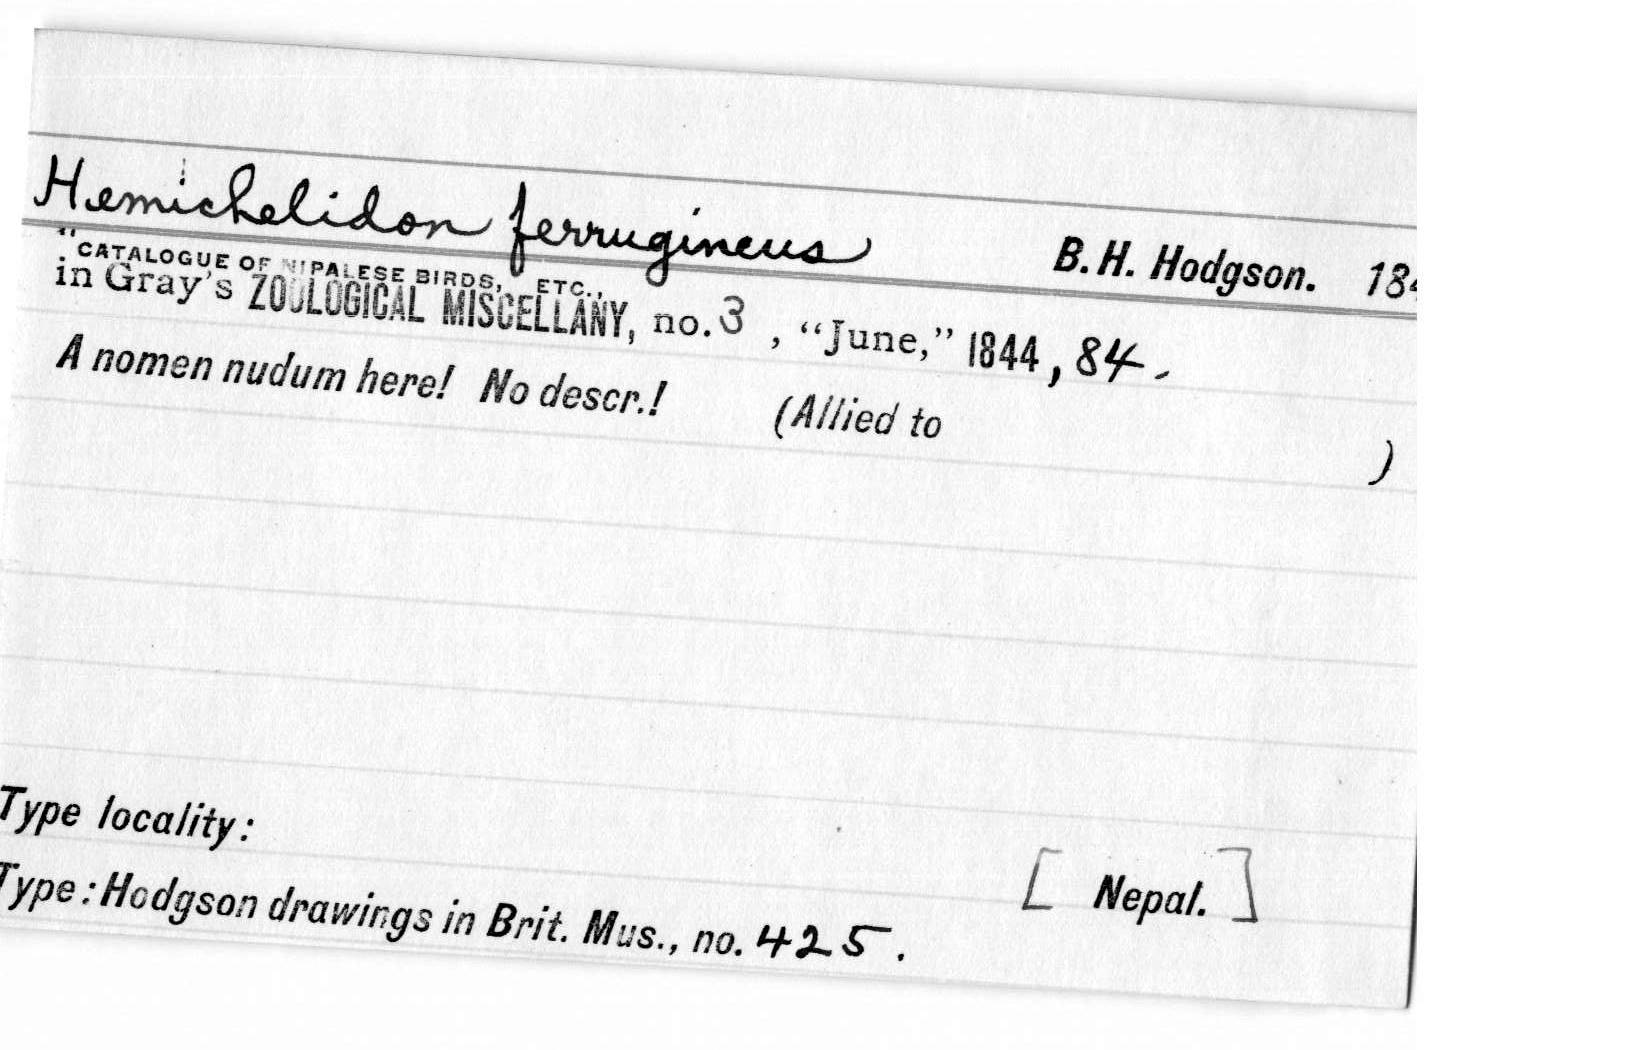 Hemichelidon ferrugineus B.H. Hodgson.
"CATALOGUE OF NIPALESE BIRDS, ETC.,
in Gray's ZOOLOGICAL MISCELLANY, no. 3, "June," 1844, 84.
A nomen nudum here! No descr.! (Allied to )
Type locality: [Nepal.]
Type: Hodgson drawings in Brit. Mus., no. 425.